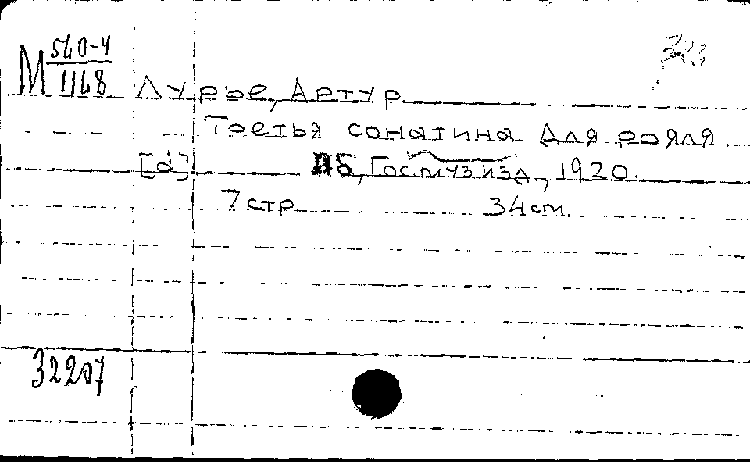 М 560-4
1168
Лурье, Артур
Третья сонатина для рояля
[d] ПБ, Госмузизд., 1920.
7 стр 34 см.
32207